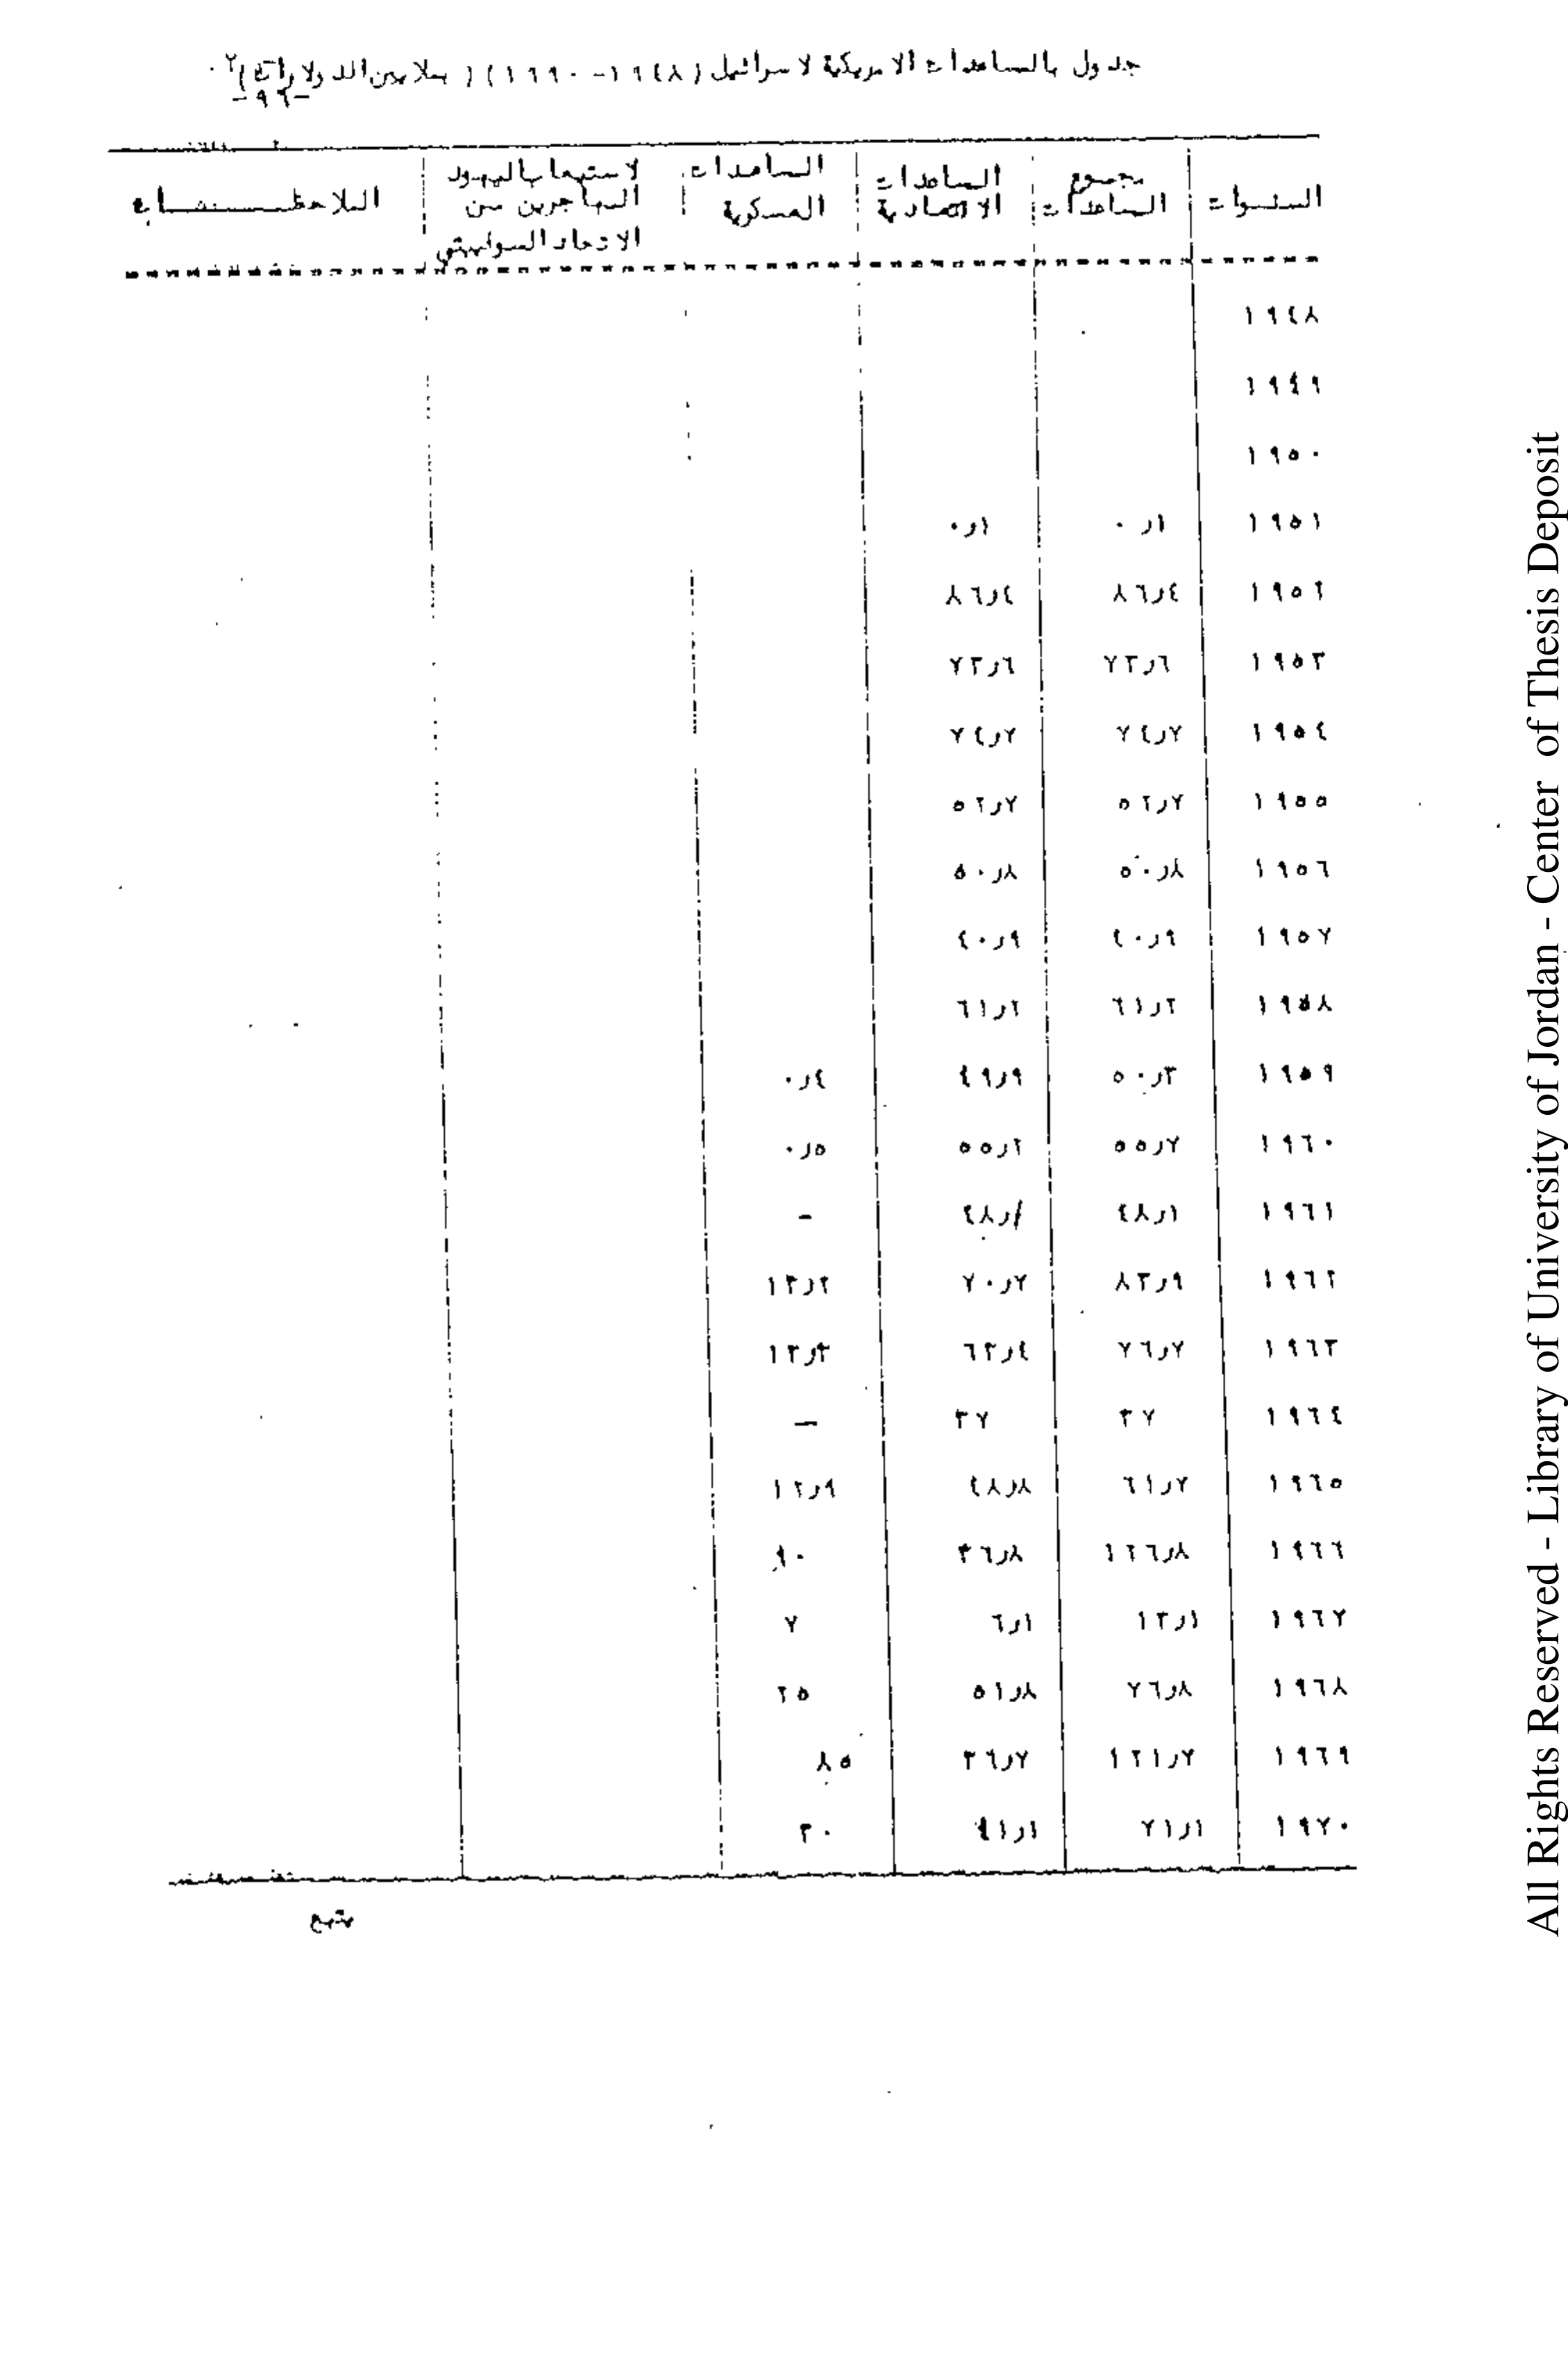 جدول بالمساعدات الامريكية لاسرائيل (١٩٤٨-١٩٩٠) ( بملايين الدولارات )٢.
-٩٦-
السنوات | مجموع المساعدات | المساعدات الاقتصادية | المساعدات العسكرية | لاستيعاب اليهود المهاجرين من الاتحاد السوفييتي | الملاحظات
١٩٤٨
١٩٤٩
١٩٥٠
١٩٥١ ٠ر١ ٠ر١
١٩٥٢ ٨٦ر٤ ٨٦ر٤
١٩٥٣ ٧٣ر٦ ٧٣ر٦
١٩٥٤ ٧٤ر٧ ٧٤ر٧
١٩٥٥ ٥٢ر٧ ٥٢ر٧
١٩٥٦ ٥٠ر٨ ٥٠ر٨
١٩٥٧ ٤٠ر٩ ٤٠ر٩
١٩٥٨ ٦١ر٢ ٦١ر٢
١٩٥٩ ٥٠ر٣ ٤٩ر٩ ٠ر٤
١٩٦٠ ٥٥ر٧ ٥٥ر٢ ٠ر٥
١٩٦١ ٤٨ر١ ٤٨ر١ -
١٩٦٢ ٨٣ر٩ ٧٠ر٧ ١٣ر٢
١٩٦٣ ٧٦ر٧ ٦٣ر٤ ١٣ر٣
١٩٦٤ ٣٧ ٣٧ —
١٩٦٥ ٦١ر٧ ٤٨ر٨ ١٢ر٩
١٩٦٦ ١٢٦ر٨ ٣٦ر٨ ٩٠
١٩٦٧ ١٣ر١ ٦ر١ ٧
١٩٦٨ ٧٦ر٨ ٥١ر٨ ٢٥
١٩٦٩ ١٢١ر٧ ٣٦ر٧ ٨٥
١٩٧٠ ٧١ر١ ٤١ر١ ٣٠
يتبع
All Rights Reserved - Library of University of Jordan - Center of Thesis Deposit